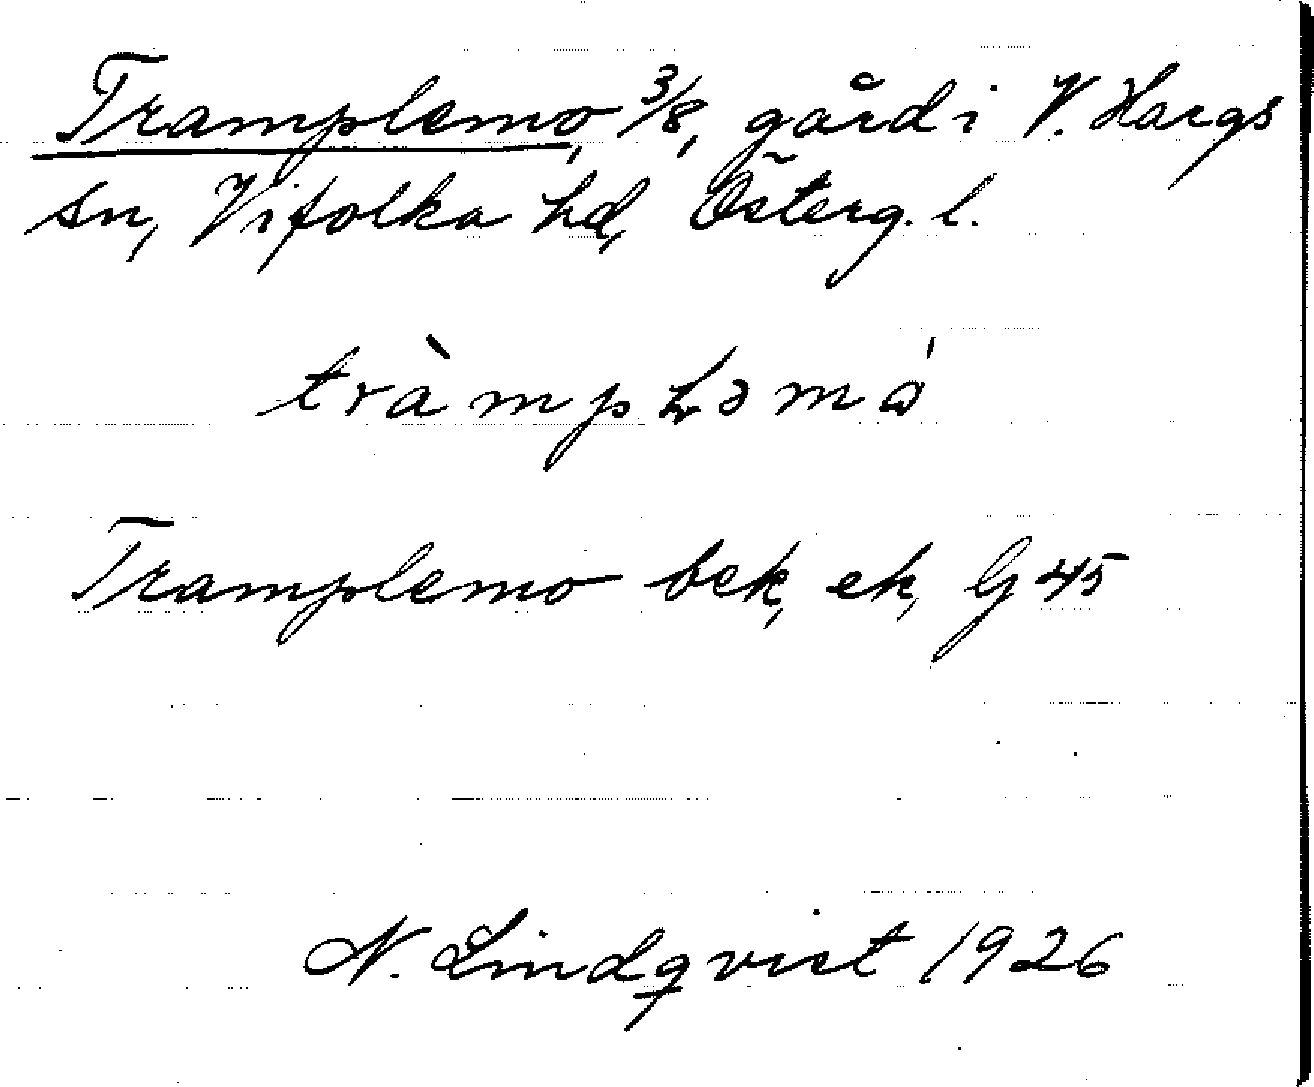 Tramplemo, 3/8, gård i V. Hargs
sn, Vifolka hd, Österg. l.
tràmpLəmó
Tramplemo bek, ek, G 45
N. Lindqvist 1926